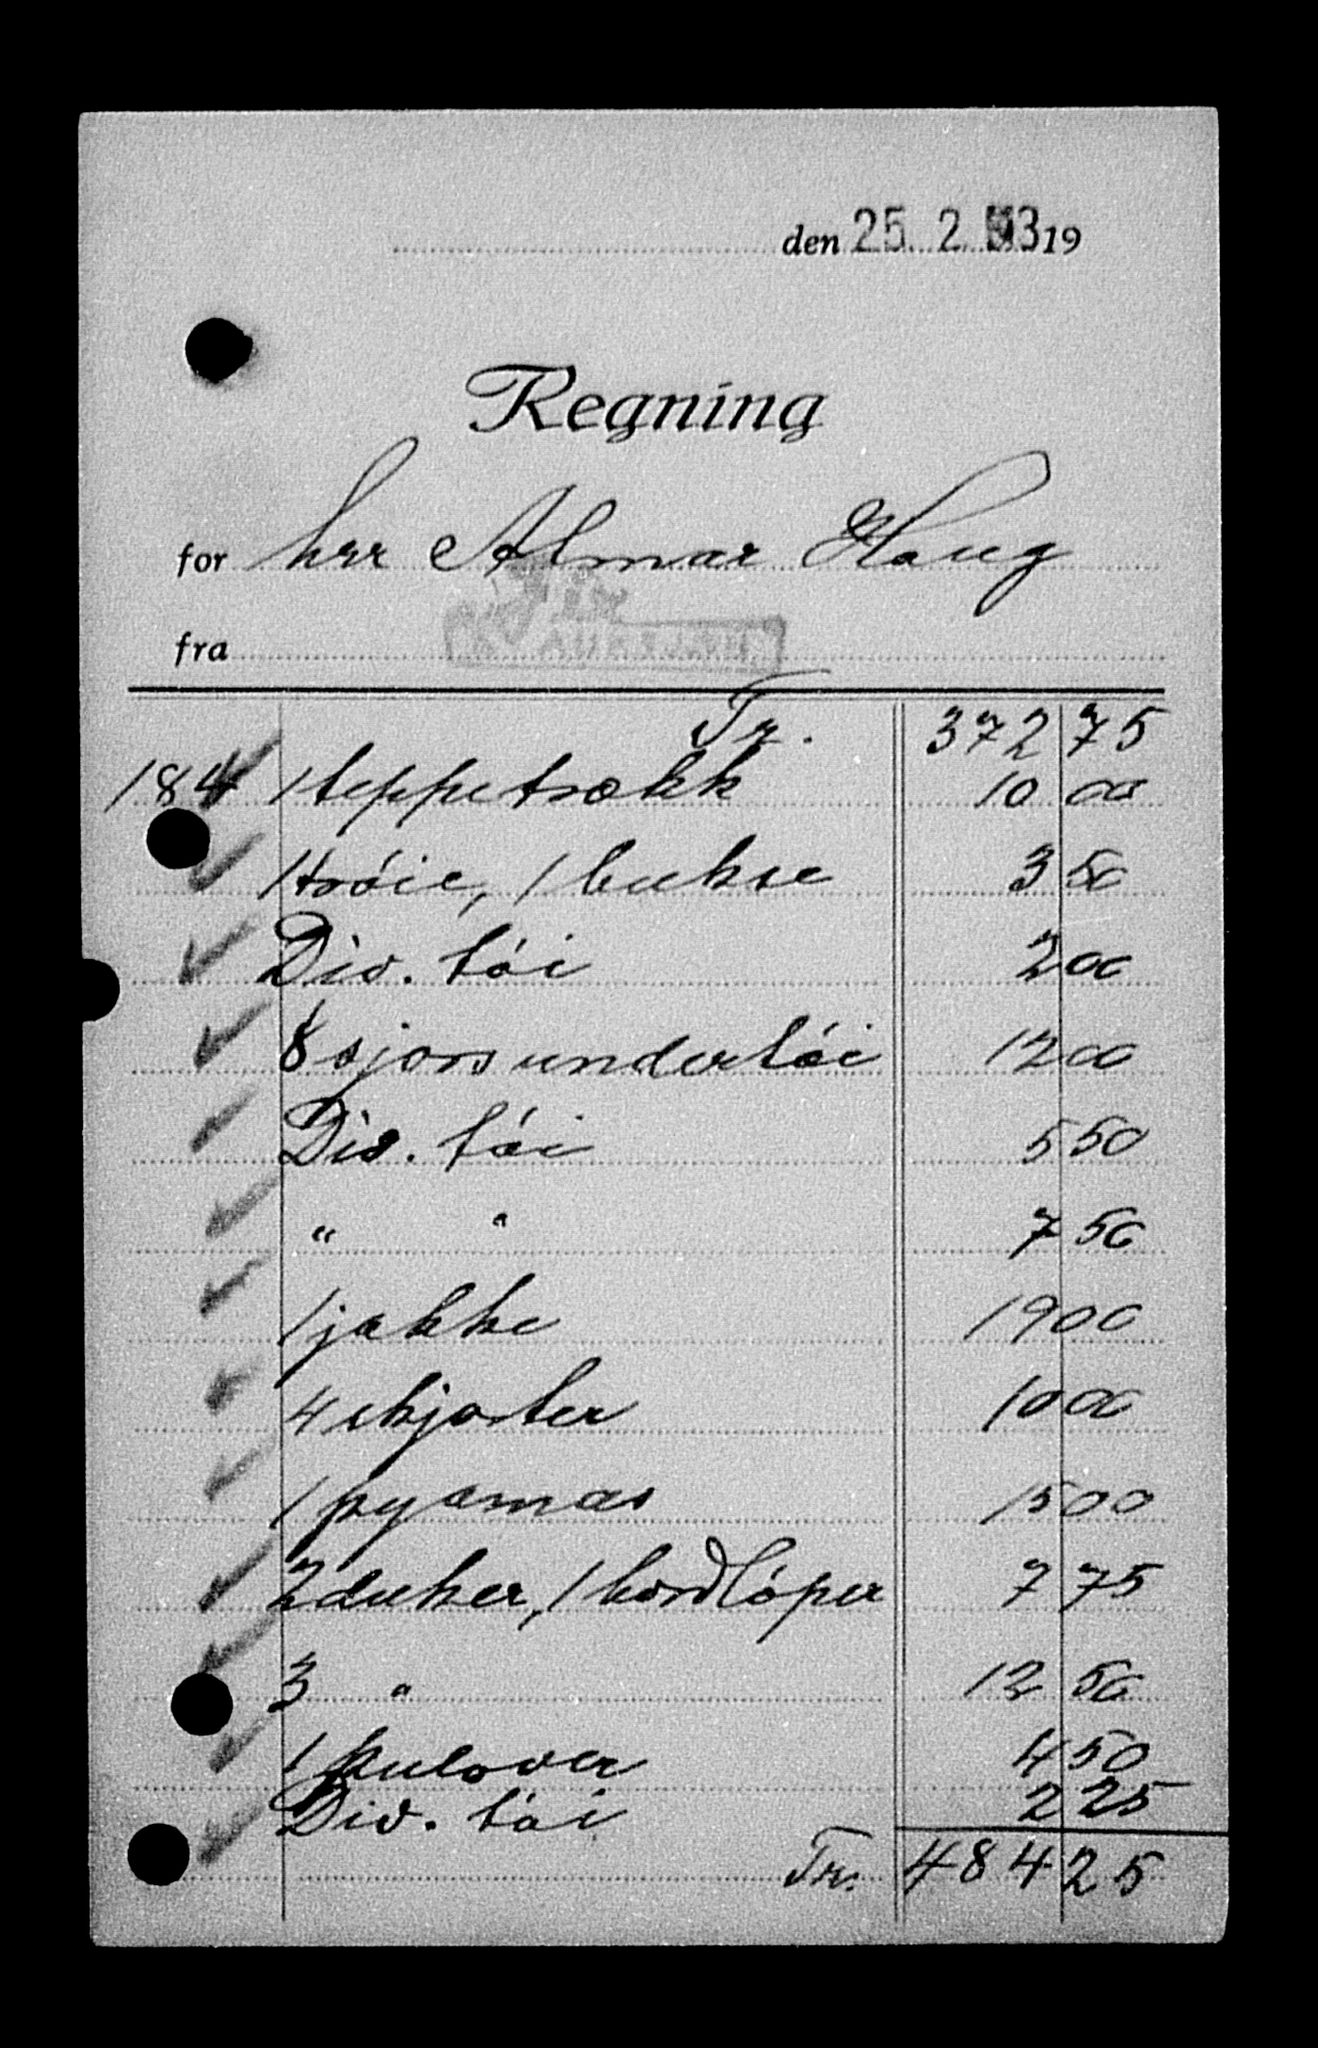 den 25. 2. 43 19
Regning
for herr Almar Haug
fra
Tr. 372 75
184 1 teppetrækk 10 00
1 tróie, 1 bukse 3 50
Div. tói 2 00
8 undertói 12 00
Div. tói 5 50
" " 7 50
1 jakke 19 00
4 skjorter 10 00
1 pyamas 15 00
2 duker, 1 bordlóper 7 75
3 " 12 50
1 pulover 4 50
Div. tói 2 25
Tr. 484 25